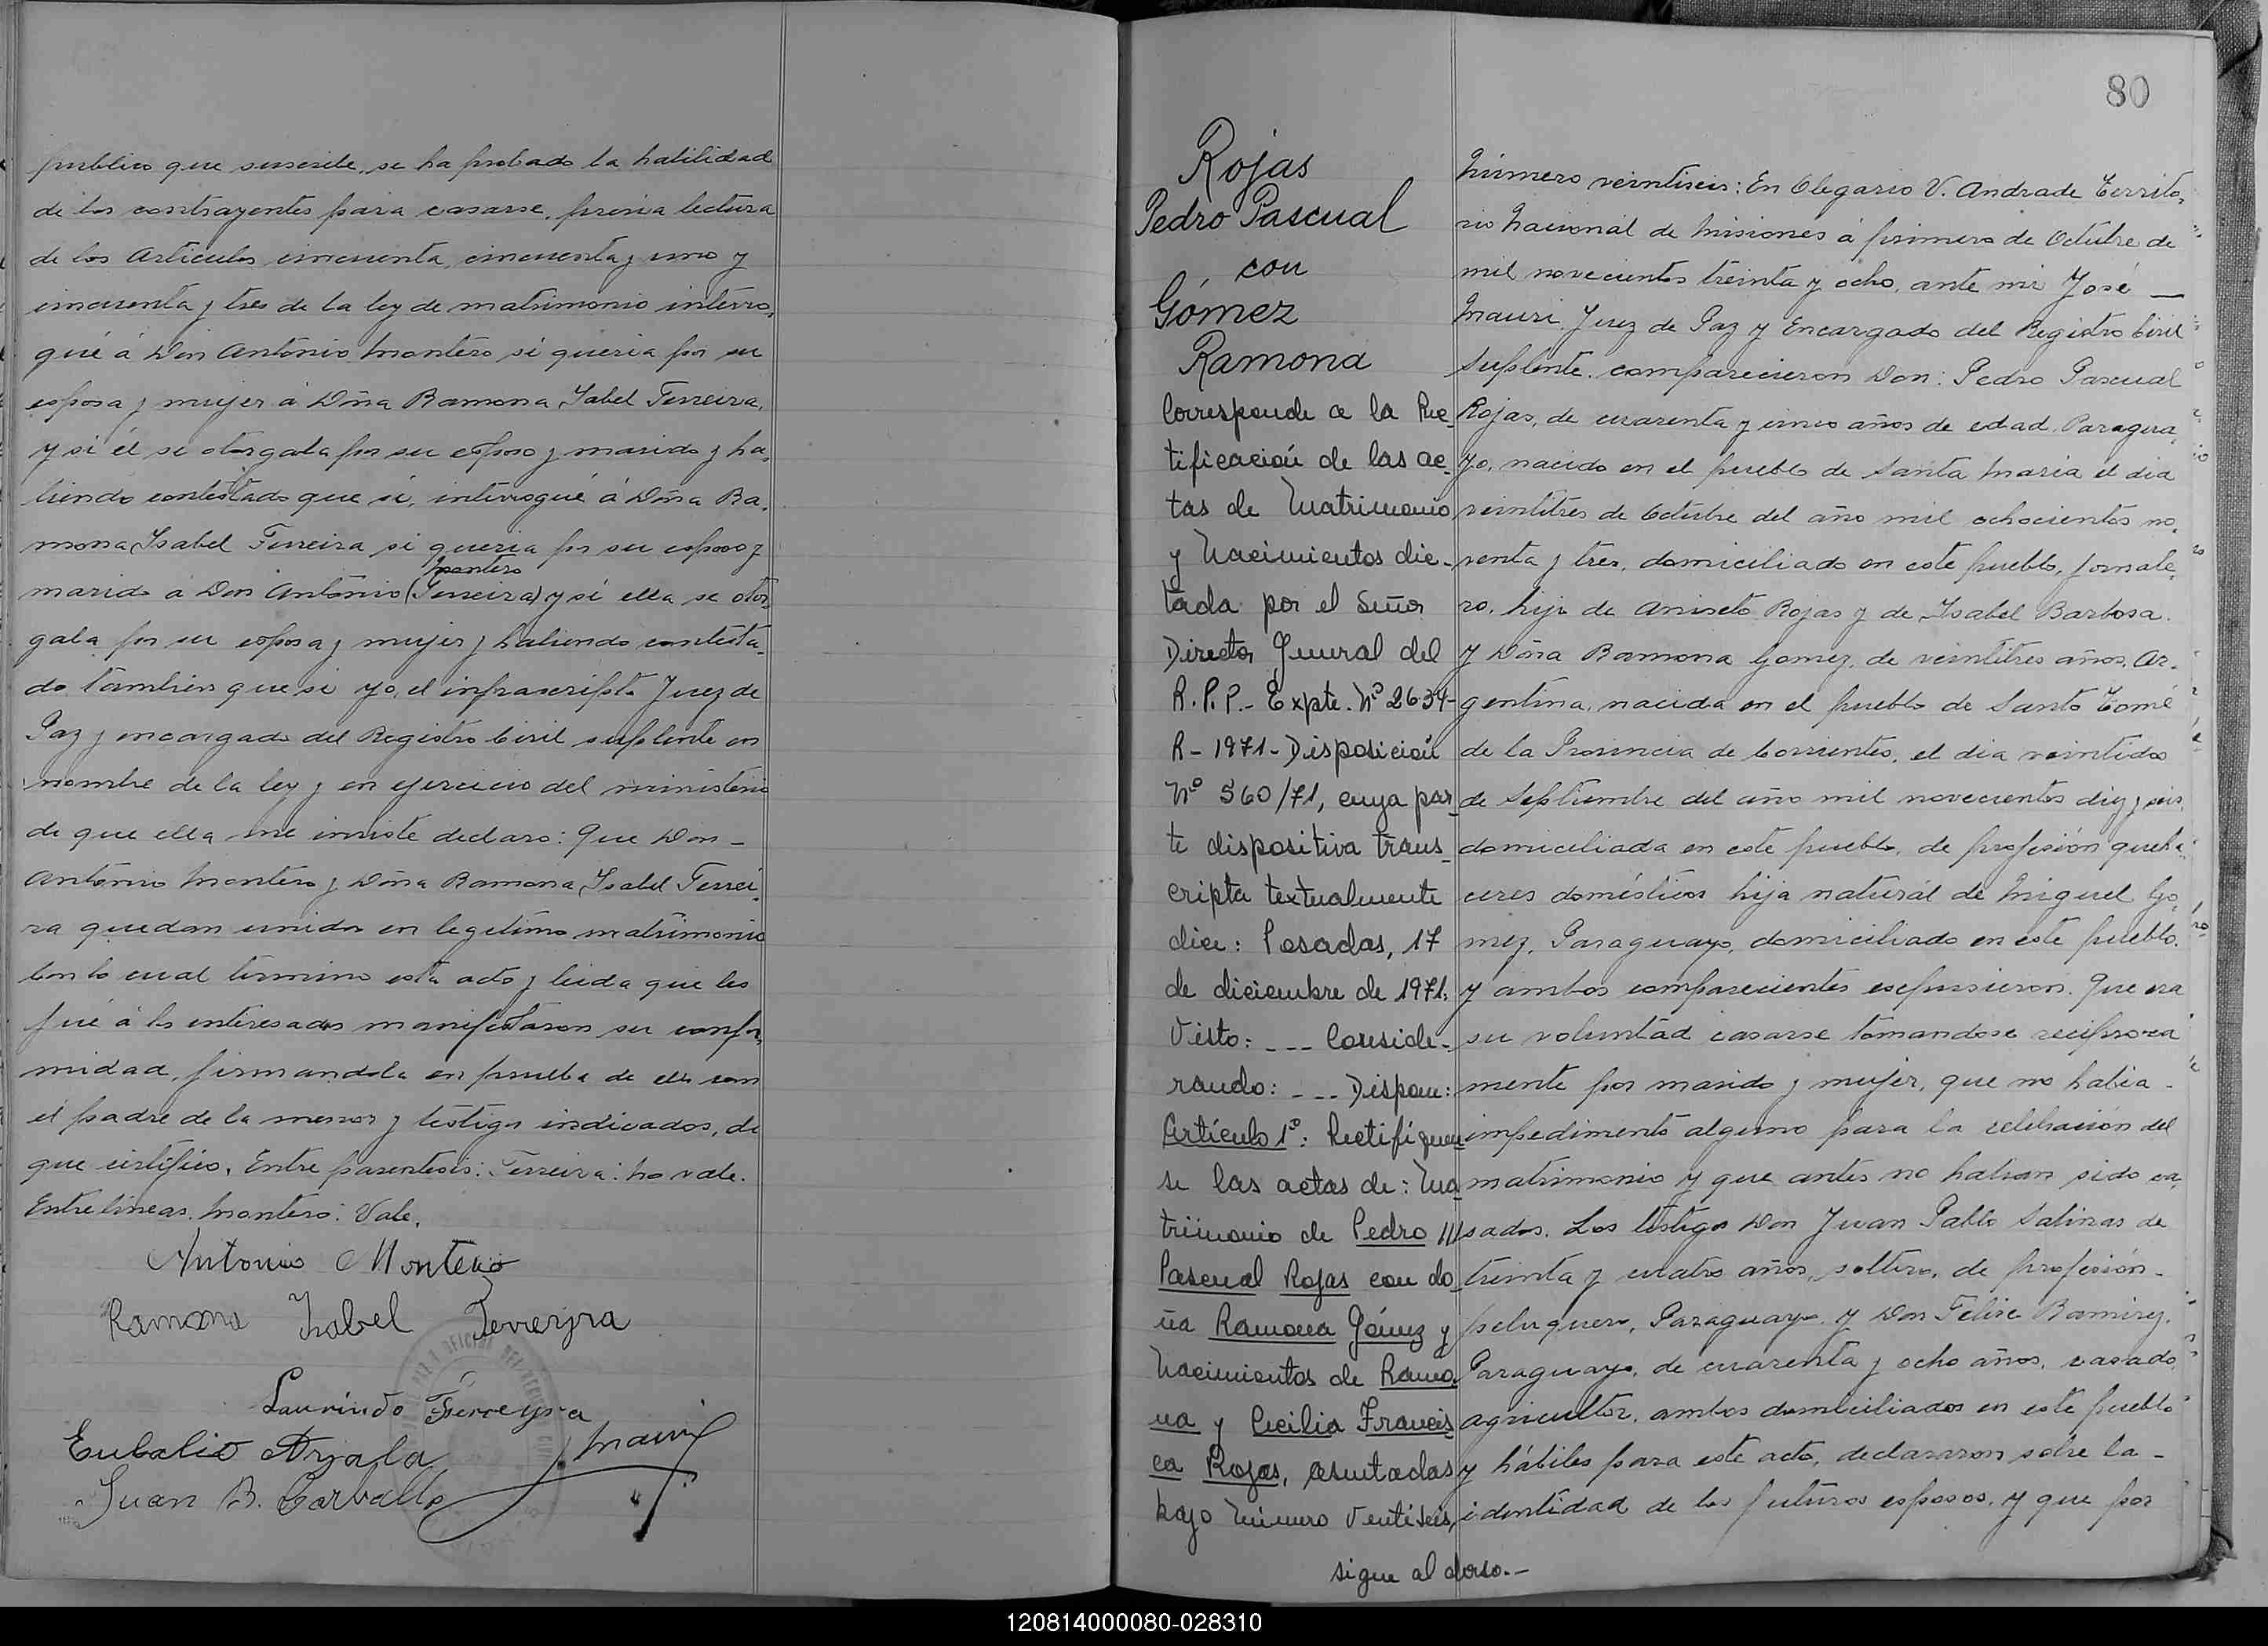 publico que suscribe, se ha probado la habilidad
de los contrayentes para casarse, previa lectura
de los Articulos cincuenta, cincuenta y uno y
cincuenta y tres de la ley de matrimonio interro,
gué á Don Antonio Montero si queria por su
esposa y mujer á Doña Ramona Isabel Ferreira,
y si él se otorgaba por su esposo y marido y ha,
biendo contestado que si, interrogué á Doña Ra,
mona Isabel Ferreira si queria por su esposo y
Montero
marido á Don Antonio (Ferreira) y si ella se otor,
gaba por su esposa y mujer y habiendo contesta,
do tambien que si yo, el infrascripto Juez de
Paz y encargado del Registro Civil suplente en
nombre de la ley y en ejercicio del ministerio
de que ella me inviste declaro: Que Don -
Antonio Montero y Doña Ramona Isabel Ferrei,
ra quedan unidos en legitimo matrimonio
Con lo cual termino esta acto y leida que les
fué á los interesados manifestaron su confor,
midad, firmandola en prueba de ello con
el padre de la menor y testigos indicados, de
que certifico. Entre parentesis: Ferreira: no vale.
Entrelineas. Montero: Vale.
Antonio Montero
Ramona Isabel Ferreyra
Laurindo Ferreyra
Eubalio Arzala
J. Mauri
Juan B. Carvallo
80
Rojas
Pedro Pascual
con
Gómez
Ramona
Corresponde a la Rec-
tificación de las ac-
tas de Matrimonio
y Nacimientos dic-
tada por el Señor
Director General del
R.P.P.- Expte. Nº 2634-
R- 1971- Disposición
Nº 560/71, cuya par-
te dispositiva trans-
cripta textualmente
dice: Posadas, 17
de diciembre de 1971.
Visto: --- Conside-
rando: --- Dispone:
Artículo 1º: Rectifíquen
se las actas de: Ma-
trimonio de Pedro
Pascual Rojas con do-
ña Ramona Gómez y
Nacimientos de Ramo-
na y Cecilia Francis-
ca Rojas, asentadas
bajo número Ventiséis,
sigue al dorso.-
Número veintiseis: En Olegario V. Andrade Territo,
rio Nacional de Misiones á primero de Octubre de
mil novecientos treinta y ocho, ante mi José —
Mauri, Juez de Paz y Encargado del Registro Civil
Suplente. comparecieron Don: Pedro Pascual
Rojas, de cuarenta y cinco años de edad, Paragua,
yo, nacido en el pueblo de Santa Maria el dia
veintitres de Octubre del año mil ochocientos no,
venta y tres, domiciliado en este pueblo, jornale,
ro, hijo de Aniseto Rojas y de Isabel Barbosa.
y Doña Ramona Gomez, de veintitres años, Ar-
gentina, nacida en el pueblo de Santo Tomé
de la Provincia de Corrientes, el dia veintidos
de Septiembre del año mil novecientos diez y seis,
domiciliada en este pueblo, de profesión queha,
ceres domésticos hija natural de Miguel Go,
mez, Paraguayo, domiciliado en este pueblo.
y ambos comparecientes expusieron. Que era
su voluntad casarse tomandose reciproca
mente por marido y mujer, que no habia -
impedimento alguno para la celebración del
matrimonio y que antes no habian sido ca,
sados. Los testigos Don Juan Pablo Salinas de
treinta y cuatro años, soltero, de profesión -
peluquero, Paraguayo y Don Felix Ramirez.
Paraguayo, de cuarenta y ocho años, casado,
agricultor, ambos domiciliados en este pueblo
y hábiles para este acto, declararon sobre la -
identidad de los futuros esposos, y que por
120814000080-028310